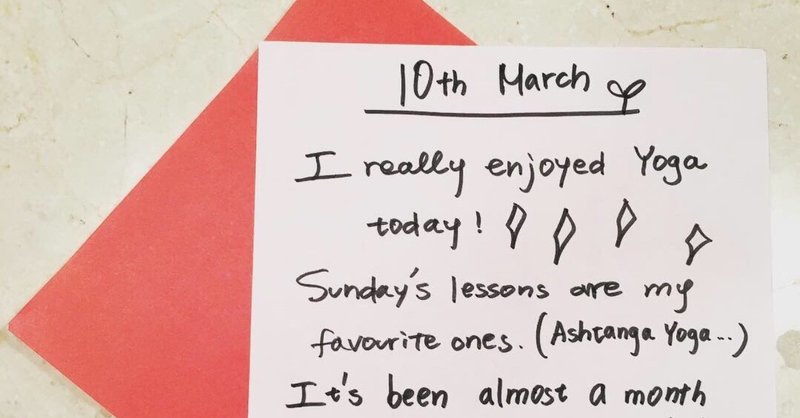 10th March
I really enjoyed Yoga
today!
Sunday's lessons are my
favourite ones. (Ashtanga Yoga..)
It's been almost a month